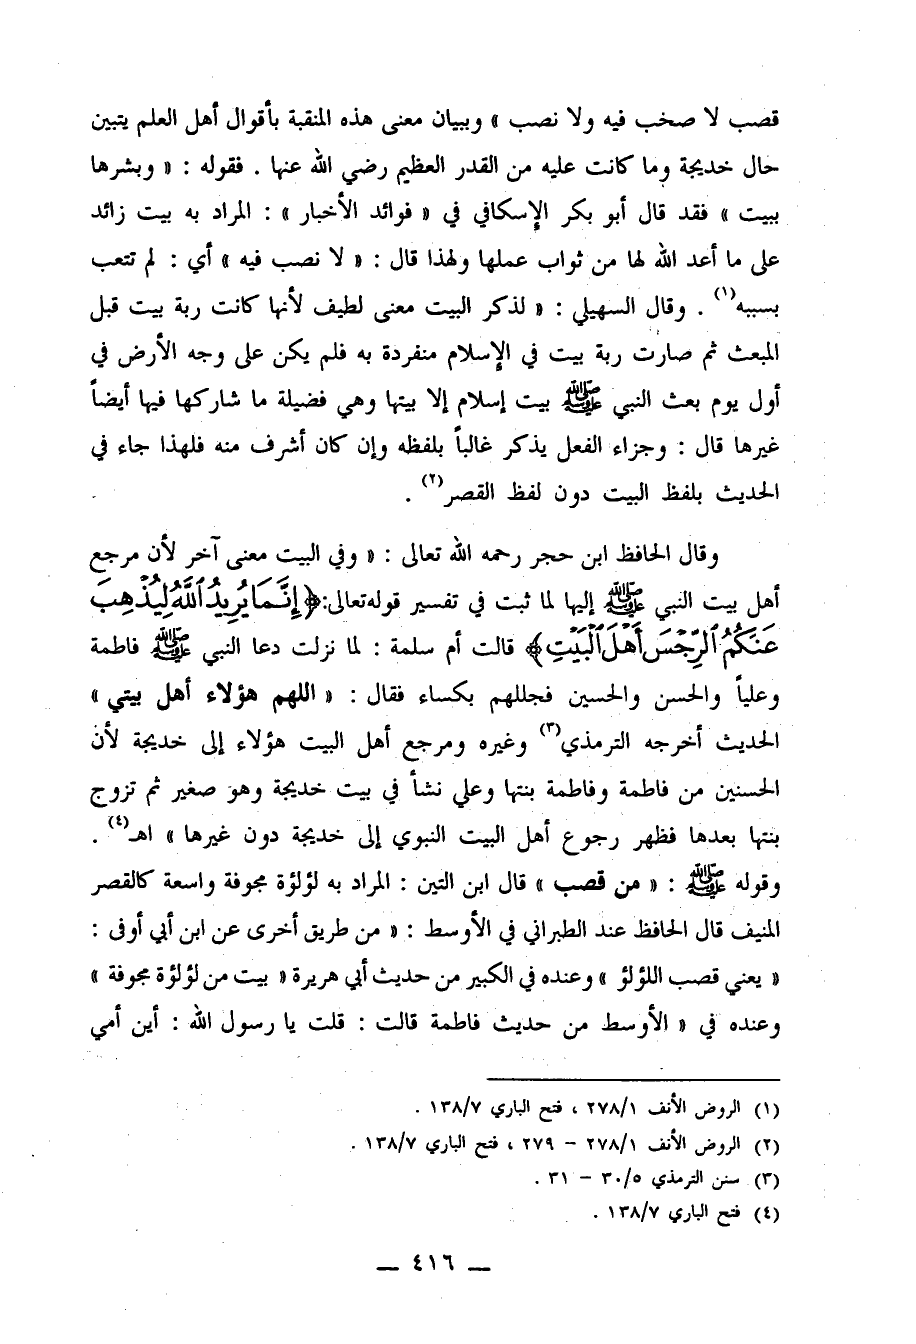 قصب لا صخب فيه ولا نصب » وببيان معنى هذه المنقبة بأقوال أهل العلم يتبين
حال خديجة وما كانت عليه من القدر العظيم رضي الله عنها . فقوله : « وبشرها
ببيت » فقد قال أبو بكر الإسكافي في « فوائد الأخبار » : المراد به بيت زائد
على ما أعد الله لها من ثواب عملها ولهذا قال : « لا نصب فيه » أي : لم تتعب
بسببه(١) . وقال السهيلي : « لذكر البيت معنى لطيف لأنها كانت ربة بيت قبل
المبعث ثم صارت ربة بيت في الإسلام منفردة به فلم يكن على وجه الأرض في
أول يوم بعث النبي ﷺ بيت إسلام إلا بيتها وهي فضيلة ما شاركها فيها أيضاً
غيرها قال : وجزاء الفعل يذكر غالباً بلفظه وإن كان أشرف منه فلهذا جاء في
الحديث بلفظ البيت دون لفظ القصر(٢) .
وقال الحافظ ابن حجر رحمه الله تعالى : « وفي البيت معنى آخر لأن مرجع
أهل بيت النبي ﷺ إليها لما ثبت في تفسير قوله تعالى: ﴿ إِنَّمَا يُرِيدُ ٱللَّهُ لِيُذْهِبَ
عَنكُمُ ٱلرِّجْسَ أَهْلَ ٱلْبَيْتِ ﴾ قالت أم سلمة : لما نزلت دعا النبي ﷺ فاطمة
وعلياً والحسن والحسين فجللهم بكساء فقال : « اللهم هؤلاء أهل بيتي »
الحديث أخرجه الترمذي(٣) وغيره ومرجع أهل البيت هؤلاء إلى خديجة لأن
الحسنين من فاطمة وفاطمة بنتها وعلي نشأ في بيت خديجة وهو صغير ثم تزوج
بنتها بعدها فظهر رجوع أهل البيت النبوي إلى خديجة دون غيرها » اهـ(٤) .
وقوله ﷺ : « من قصب » قال ابن التين : المراد به لؤلؤة مجوفة واسعة كالقصر
المنيف قال الحافظ عند الطبراني في الأوسط : « من طريق أخرى عن ابن أبي أوفى :
« يعني قصب اللؤلؤ » وعنده في الكبير من حديث أبي هريرة « بيت من لؤلؤة مجوفة »
وعنده في « الأوسط من حديث فاطمة قالت : قلت يا رسول الله : أين أمي
(١) الروض الأنف ٢٧٨/١ ، فتح الباري ١٣٨/٧ .
(٢) الروض الأنف ٢٧٨/١ – ٢٧٩ ، فتح الباري ١٣٨/٧ .
(٣) سنن الترمذي ٣٠/٥ – ٣١ .
(٤) فتح الباري ١٣٨/٧ .
— ٤١٦ —